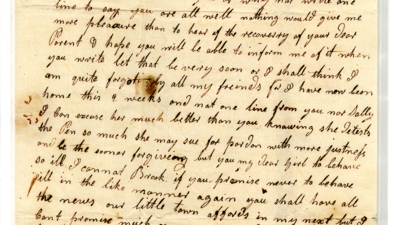 or why not wrote one
line to say you are all well nothing would give me
more pleasure than to hear of the recovery of your Dear
Parent & hope you will be able to inform me of it when
you write let that be very soon or I shall think I
am quite forgot by all my friends for I have now been
home this 9 weeks and not one line from you nor Sally
I Can excuse her much better than you knowing she Detests
the Pen so much she may sue for pardon with more justness
and be the sooner forgiveing but you my Dear Girl to behave
so ill I cannot Brook if you promise never to behave
ill in the like manner again you shall have all
the news our little town affords in my next but I
Cant promise much